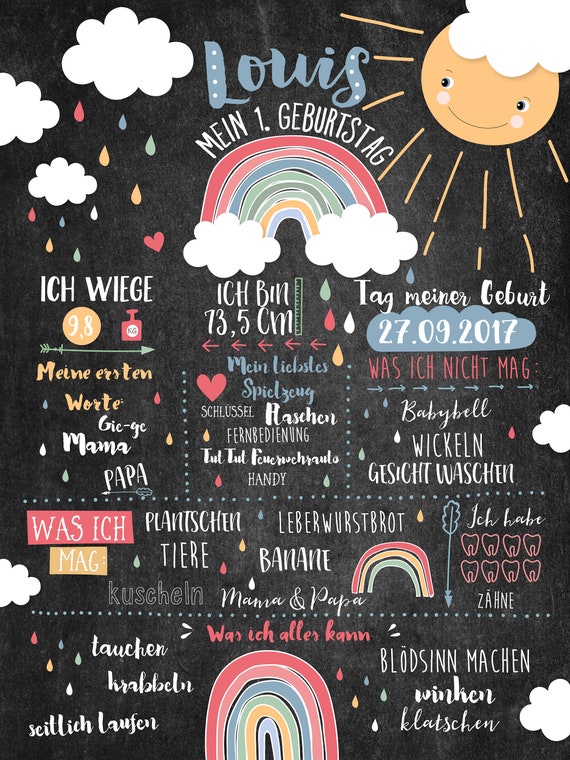 Louis
MEIN 1. GEBURTSTAG
ICH WIEGE
9,8
KG
ICH BIN
73,5 CM
Tag meiner Geburt
27.09.2017
Meine ersten
Worte:
Gie-ge
Mama
PAPA
Mein liebstes
Spielzeug
SCHLÜSSEL Flaschen
FERNBEDIENUNG
Tut Tut Feuerwehrauto
HANDY
WAS ICH NICHT MAG:
Babybell
WICKELN
GESICHT WASCHEN
WAS ICH
MAG:
PLANTSCHEN
LEBERWURSTBROT
TIERE
BANANE
kuscheln
Mama & Papa
Ich habe
ZÄHNE
Was ich alles kann
tauchen
krabbeln
seitlich laufen
BLÖDSINN MACHEN
winken
klatschen